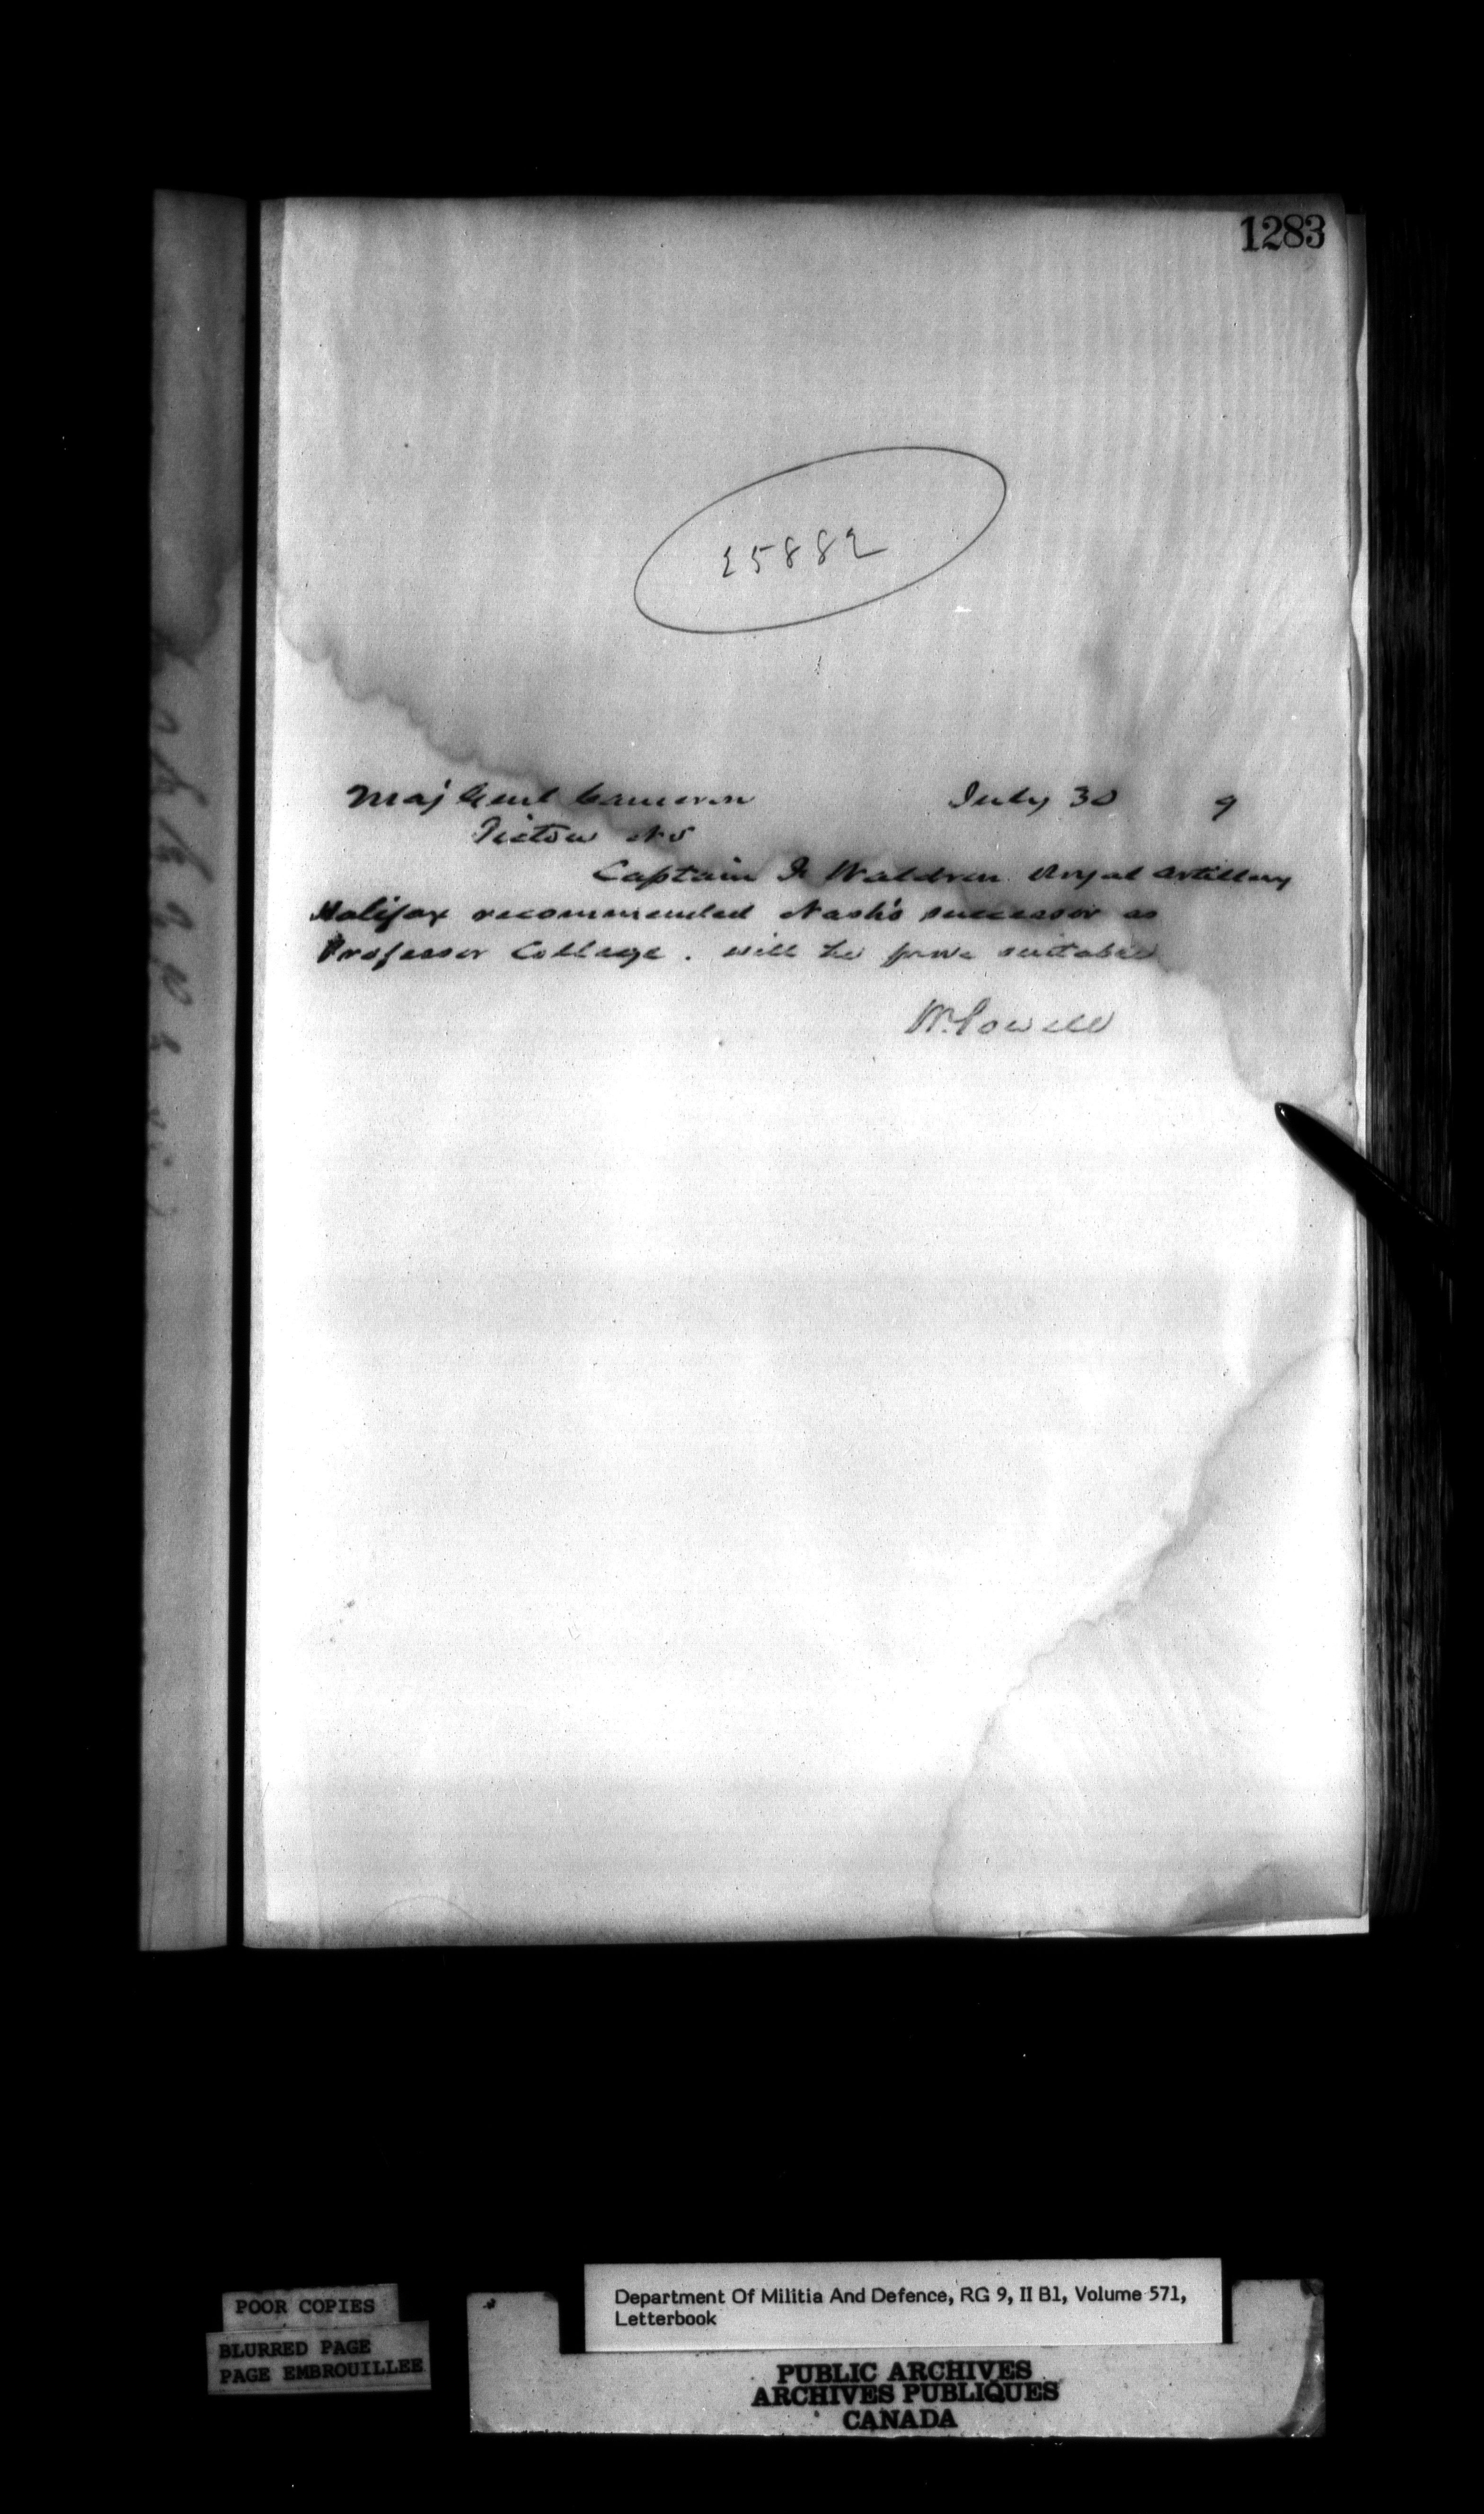 1283
25882
Maj Genl Cameron July 30 9
Pictou NS
Captain F Waldron Royal Artillery
Halifax recommended Nash's successor as
Professor College. will he prove suitable
W. Powell
POOR COPIES
BLURRED PAGE
PAGE EMBROUILLEE
Department Of Militia And Defence, RG 9, II B1, Volume 571,
Letterbook
PUBLIC ARCHIVES
ARCHIVES PUBLIQUES
CANADA